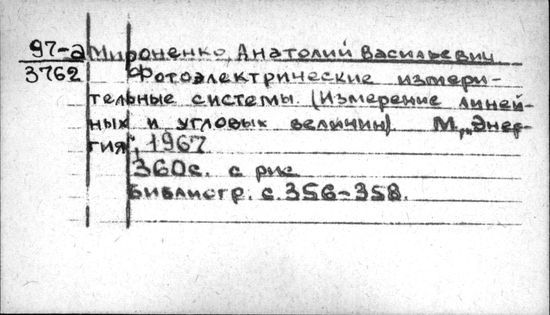 97-а Мироненко, Анатолий Васильевич
3762 Фотоэлектрические измери-
тельные системы. (Измерение линей-
ных и угловых величин). М, „Энер-
гия", 1967
360с. с рис
Библиогр. с. 356-358.